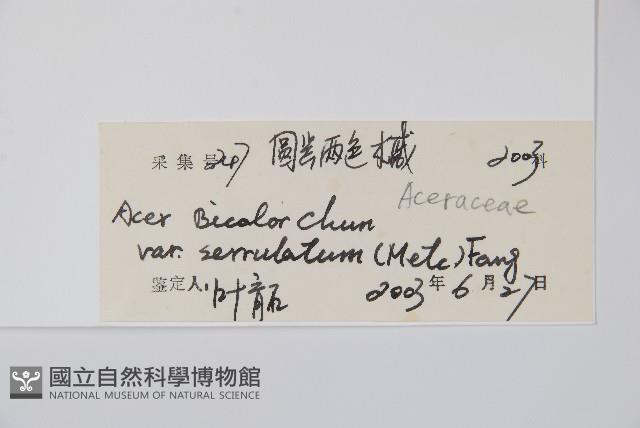 采集号 247 圆齿两色槭 2003 科
Aceraceae
Acer Bicolor Chun
var. serrulatum (Metc) Fang
鉴定人 叶 2003 年 6 月 27 日
國立自然科學博物館
NATIONAL MUSEUM OF NATURAL SCIENCE